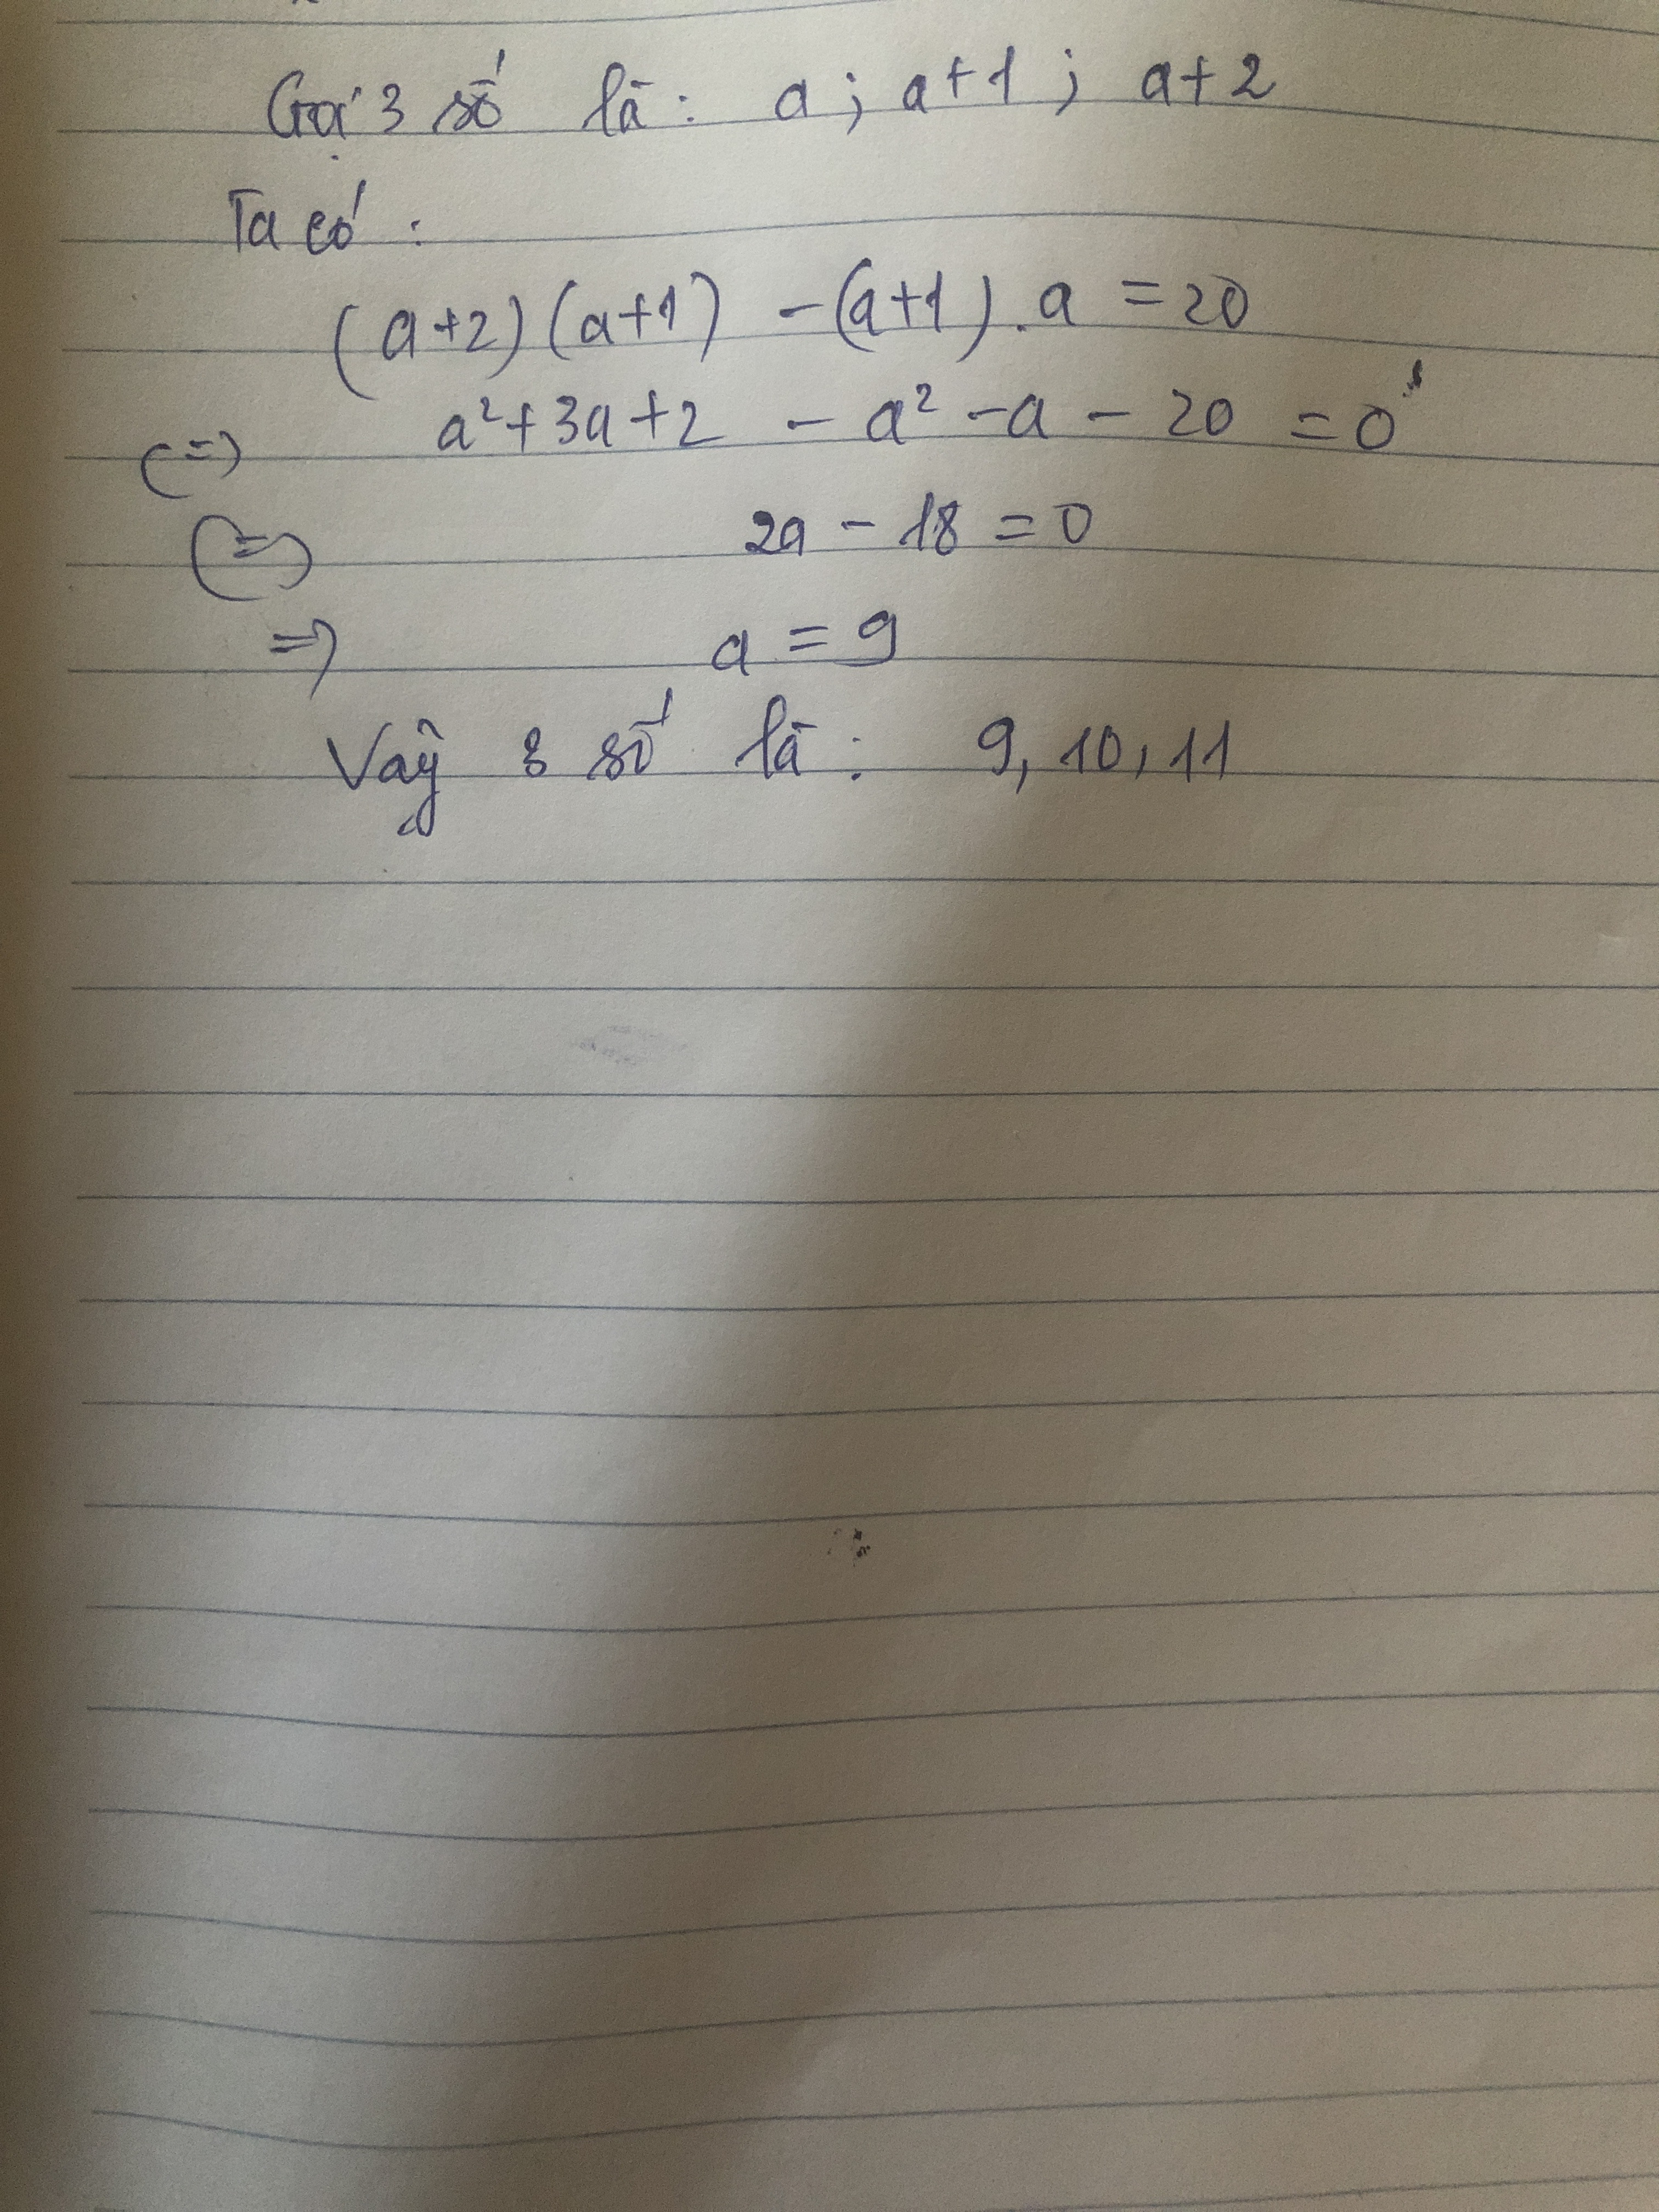 Gọi 3 số là: a; a+1; a+2
Ta có:
(a+2)(a+1) - (a+1).a = 20
(=) a²+3a+2 - a² - a - 20 = 0
(=) 2a - 18 = 0
=) a = 9
Vậy 3 số là: 9, 10, 11